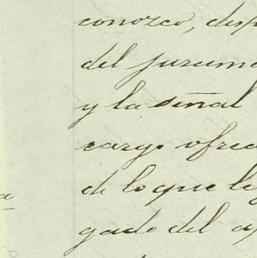 conozco, desp
del jurame
y la señal
cargo ofrec
de lo que le
gado del a
a